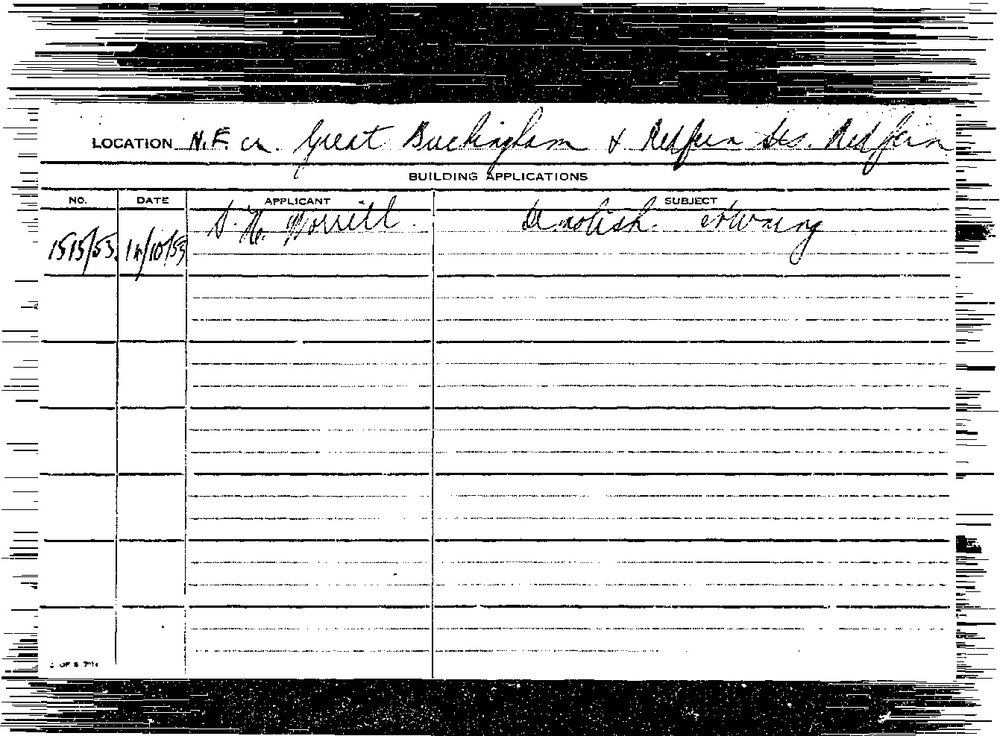 LOCATION N.E. cn. Great Buckingham & Redfern Sts. Redfern
BUILDING APPLICATIONS
NO. DATE APPLICANT SUBJECT
1515/53. 14/10/53 S. H. Worrill. Demolish. awning